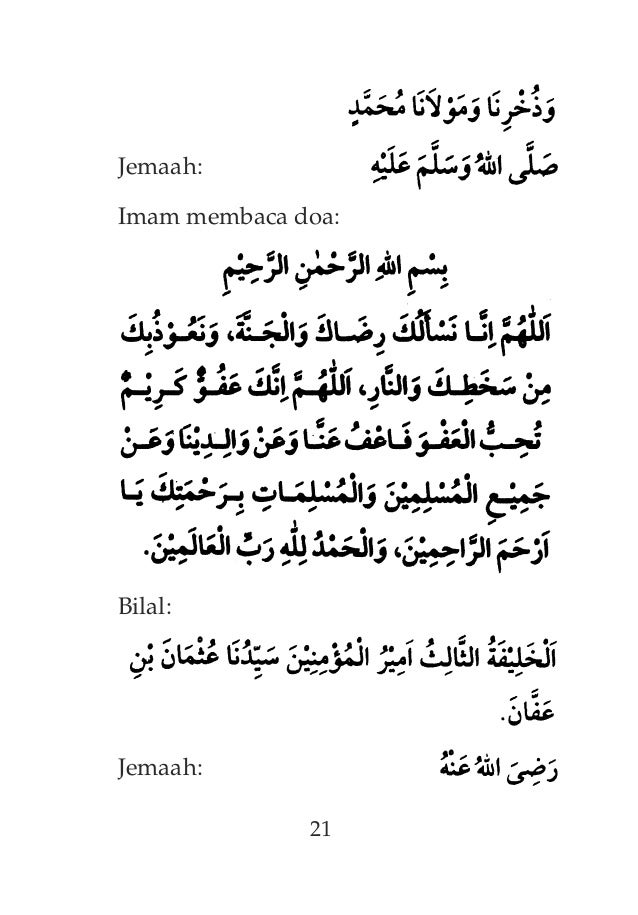 وَذُخْرِنَا وَمَوْلَانَا مُحَمَّدٍ
Jemaah: صَلَّى اللهُ وَسَلَّمَ عَلَيْهِ
Imam membaca doa:
بِسْمِ اللهِ الرَّحْمٰنِ الرَّحِيْمِ
اَللّٰهُمَّ اِنَّا نَسْأَلُكَ رِضَاكَ وَالْجَنَّةَ، وَنَعُوْذُبِكَ
مِنْ سَخَطِكَ وَالنَّارِ، اَللّٰهُمَّ اِنَّكَ عَفُوٌّ كَرِيْمٌ
تُحِبُّ الْعَفْوَ فَاعْفُ عَنَّا وَعَنْ وَالِدِيْنَا وَعَنْ
جَمِيْعِ الْمُسْلِمِيْنَ وَالْمُسْلِمَاتِ بِرَحْمَتِكَ يَا
اَرْحَمَ الرَّاحِمِيْنَ، وَالْحَمْدُ لِلّٰهِ رَبِّ الْعَالَمِيْنَ.
Bilal:
اَلْخَلِيْفَةُ الثَّالِثُ اَمِيْرُ الْمُؤْمِنِيْنَ سَيِّدُنَا عُثْمَانَ بْنِ
عَفَّانَ.
Jemaah: رَضِيَ اللهُ عَنْهُ
21